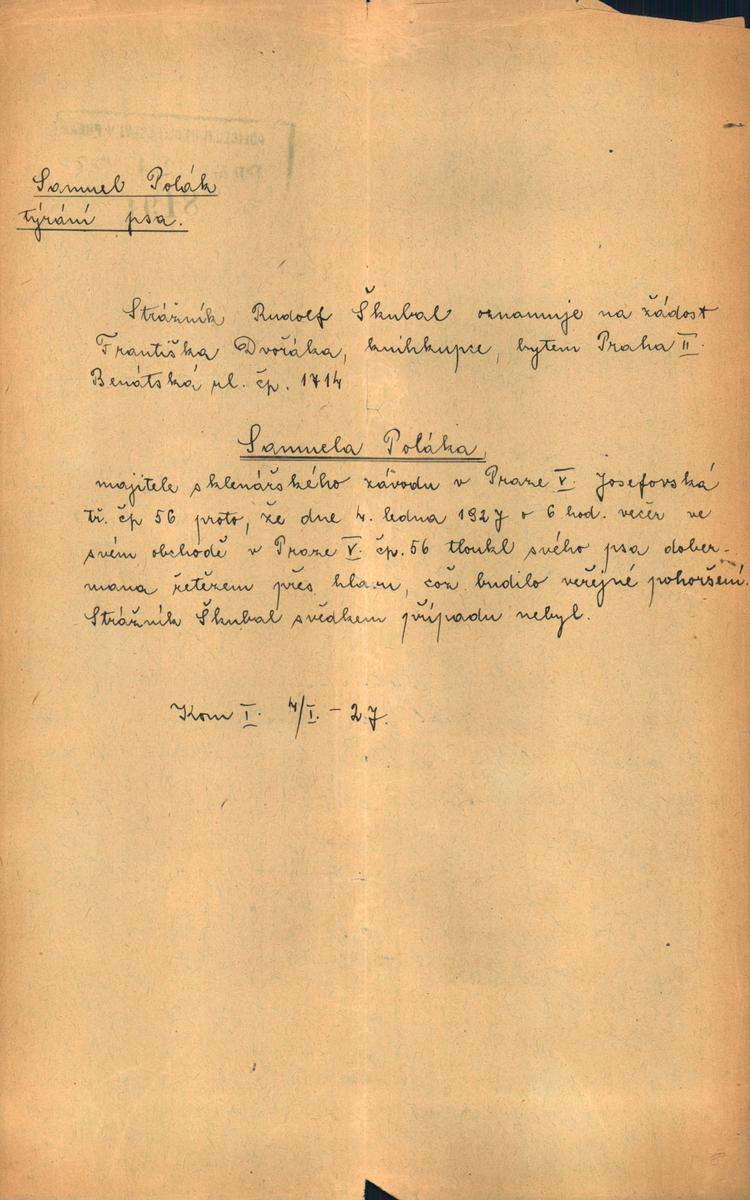 Samuel Polák
týrání psa.
Strážník Rudolf Škubal oznamuje na žádost
Františka Dvořáka, knihkupce, bytem Praha II.
Benátská ul. čp. 1714
Samuela Poláka,
majitele sklenářského závodu v Praze V. Josefovská
tř. čp 56 proto, že dne 4. ledna 1927 o 6 hod. večer ve
svém obchodě v Praze V. čp. 56 tloukl svého psa dober-
mana řetězem přes hlavu, což budilo veřejné pohoršení.
Strážník Škubal svědkem případu nebyl.
Kom I. 4/I. – 27.